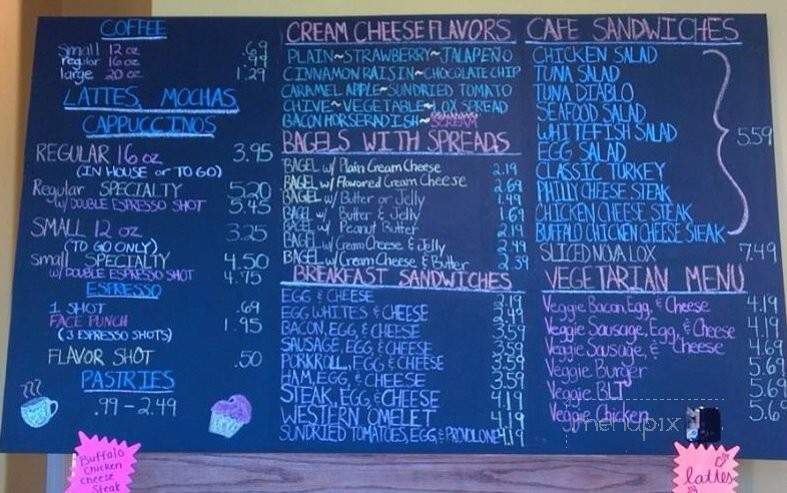 COFFEE
Small 12 oz .69
regular 16 oz .99
large 20 oz 1.29
LATTES, MOCHAS,
CAPPUCCINOS
REGULAR 16 oz 3.95
(IN HOUSE or TO GO)
Regular SPECIALTY 5.20
w/ DOUBLE ESPRESSO SHOT 5.45
SMALL 12 oz 3.25
(TO GO ONLY)
Small SPECIALTY 4.50
w/ DOUBLE ESPRESSO SHOT 4.75
ESPRESSO
1 SHOT .69
FACE PUNCH 1.95
(3 ESPRESSO SHOTS)
FLAVOR SHOT .50
PASTRIES
.99 - 2.49
CREAM CHEESE FLAVORS
PLAIN~STRAWBERRY~JALAPEÑO
CINNAMON RAISIN~CHOCOLATE CHIP
CARAMEL APPLE~SUNDRIED TOMATO
CHIVE~VEGETABLE~LOX SPREAD
BACON HORSERADISH~
BAGELS WITH SPREADS
BAGEL w/ Plain Cream Cheese 2.19
BAGEL w/ Flavored Cream Cheese 2.69
BAGEL w/ Butter or Jelly 1.49
BAGEL w/ Butter & Jelly 1.69
BAGEL w/ Peanut Butter 2.19
BAGEL w/ Cream Cheese & Jelly 2.49
BAGEL w/ Cream Cheese & Butter 2.39
BREAKFAST SANDWICHES
EGG & CHEESE 2.19
EGG WHITES & CHEESE 2.49
BACON, EGG & CHEESE 3.59
SAUSAGE, EGG & CHEESE 3.59
PORKROLL, EGG & CHEESE 3.59
HAM, EGG, & CHEESE 3.59
STEAK, EGG & CHEESE 4.19
WESTERN OMELET 4.19
SUNDRIED TOMATOES, EGG & PROVOLONE 4.19
CAFE SANDWICHES
CHICKEN SALAD
TUNA SALAD
TUNA DIABLO
SEAFOOD SALAD
WHITEFISH SALAD
5.59
EGG SALAD
CLASSIC TURKEY
PHILLY CHEESE STEAK
CHICKEN CHEESE STEAK
BUFFALO CHICKEN CHEESE STEAK
SLICED NOVA LOX 7.49
VEGETARIAN MENU
Veggie Bacon, Egg, & Cheese 4.19
Veggie Sausage, Egg, & Cheese 4.19
Veggie Sausage, & Cheese 4.69
Veggie Burger 5.69
Veggie BLT 5.69
Veggie Chicken 5.6
menupix
Buffalo
Chicken
Cheese
Steak
lattes